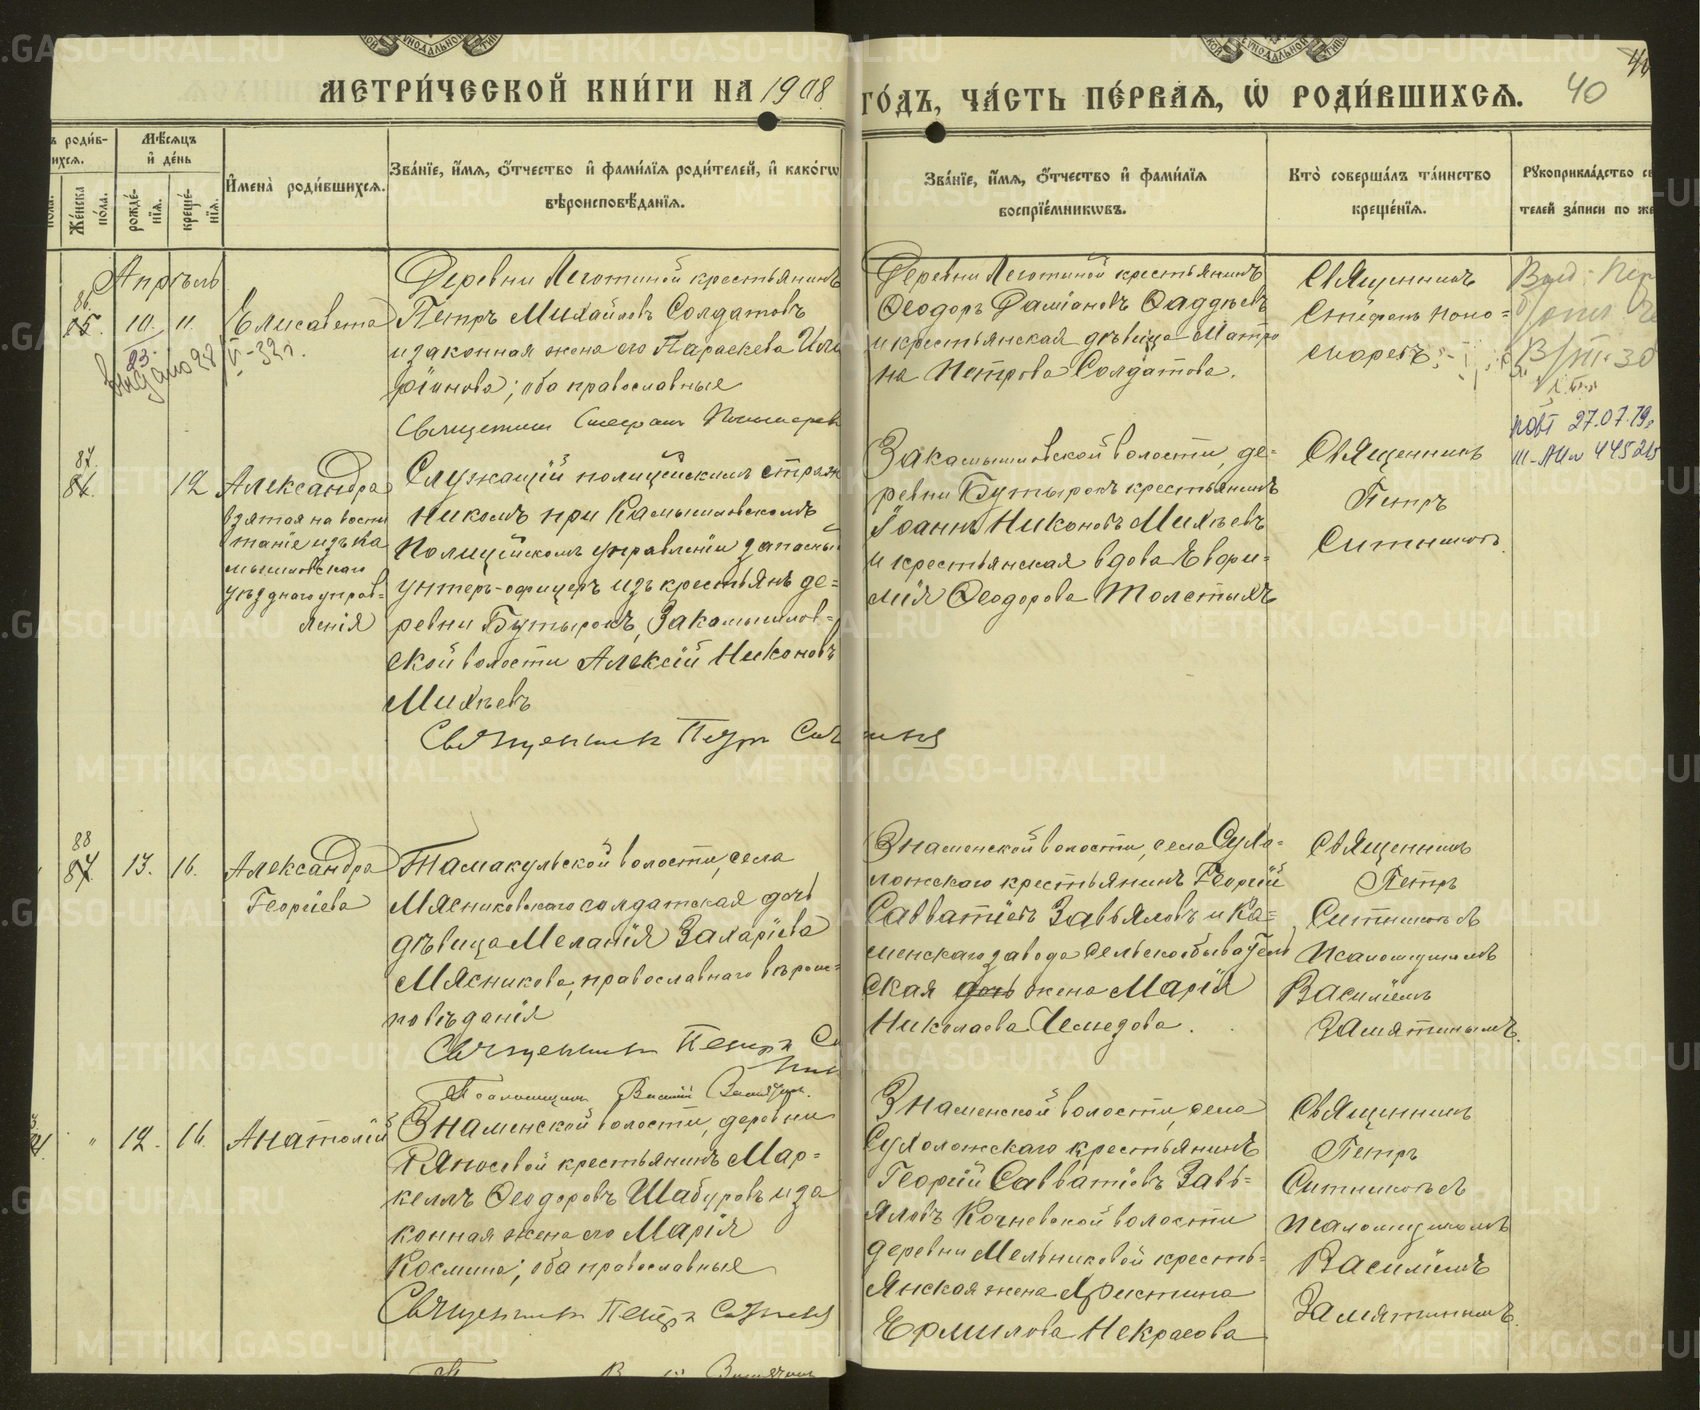 МЕТРИ́ЧЕСКОЙ КНИ́ГИ НА 1908 ГО́ДЪ, ЧА́СТЬ ПЕ́РВАЯ, Ѡ҆ РОДИ́ВШИХСЯ. 40
ъ роди́в-
ихся.
Же́нска по́ла.
Мѣ́сяцъ и҆ де́нь
рожде́-нїя.
креще́-нїя.
И҆мена̀ роди́вшихся.
Зва́нїе, и҆́мя, ѻ҆́тчество и҆ фами́лїя роди́телей, и҆ како́гѡ
вѣроисповѣ́данїя.
Зва́нїе, и҆́мя, ѻ҆́тчество и҆ фами́лїя
воспрїе́мникѡвъ.
Кто̀ соверша́лъ та́инство
креще́нїя.
Рꙋкоприкла́дство св
телей за́писи по же
Апрѣль
86.
85. 10. 11. Елисавета
23.
выдано 28/VI-32 г.
Деревни Леготиной крестьянинъ
Петръ Михайловъ Солдатовъ
и законная жена его Параскева
оба православные
Священникъ Стефанъ
Деревни Леготиной крестьянинъ
Ѳеодоръ Даміановъ Ѳаддѣевъ
и крестьянская дѣвица Матро
на Петрова Солдатова.
Священникъ
Стефанъ Поно-
маревъ.
повт 27.07.79г
III-АИ № 445215
87.
86. 12 Александра
взятая на воспи
таніе изъ Ка
мышловскаго
уѣзднаго управ-
ленія
Служащій полицейскимъ страж
никомъ при Камышловскомъ
Полицейскомъ управленіи запасный
унтеръ-офицеръ изъ крестьянъ де-
ревни Бутырокъ, Закамышлов-
ской волости Алексій Никоновъ
Михѣевъ
Священникъ Петръ Ситниковъ
Закамышловской волости, де-
ревни Бутырокъ крестьянинъ
Іоаннъ Никоновъ Михѣевъ
и крестьянская вдова Евфи-
мія Ѳеодорова Толстыхъ
Священникъ
Петръ
Ситниковъ.
88
87. 13. 16. Александра
Георгіева
Тамакульской волости, села
Мясниковскаго солдатская дочь
дѣвица Меланія Захаріева
Мясникова, православнаго вѣроис-
повѣданія
Священникъ Петръ Си
тник
Псаломщикъ Василій Замятин.
Знаменской волости, села Сухо-
ложскаго крестьянинъ Георгій
Савватіевъ Завьяловъ и Ка-
менскаго завода сельскообыватель
ская дочь жена Марія
Николаева
Священникъ
Петръ
Ситниковъ съ
псаломщикомъ
Василіемъ
Замятинымъ.
" 12. 16. Анатолій
Знаменской волости, деревни
крестьянинъ Мар-
келлъ Ѳеодоровъ Шабуровъ и за
конная жена его Марія
Космина; оба православные
Священникъ Петръ Ситниковъ
Знаменской волости, села
Сухоложскаго крестьянинъ
Георгій Савватіевъ Завь-
яловъ Кочневской волости
деревни Мельниковой кресть-
янская жена Христина
Ермилова Некрасова
Священникъ
Петръ
Ситниковъ съ
псаломщикомъ
Василіемъ
Замятинымъ.
METRIKI.GASO-URAL.RU